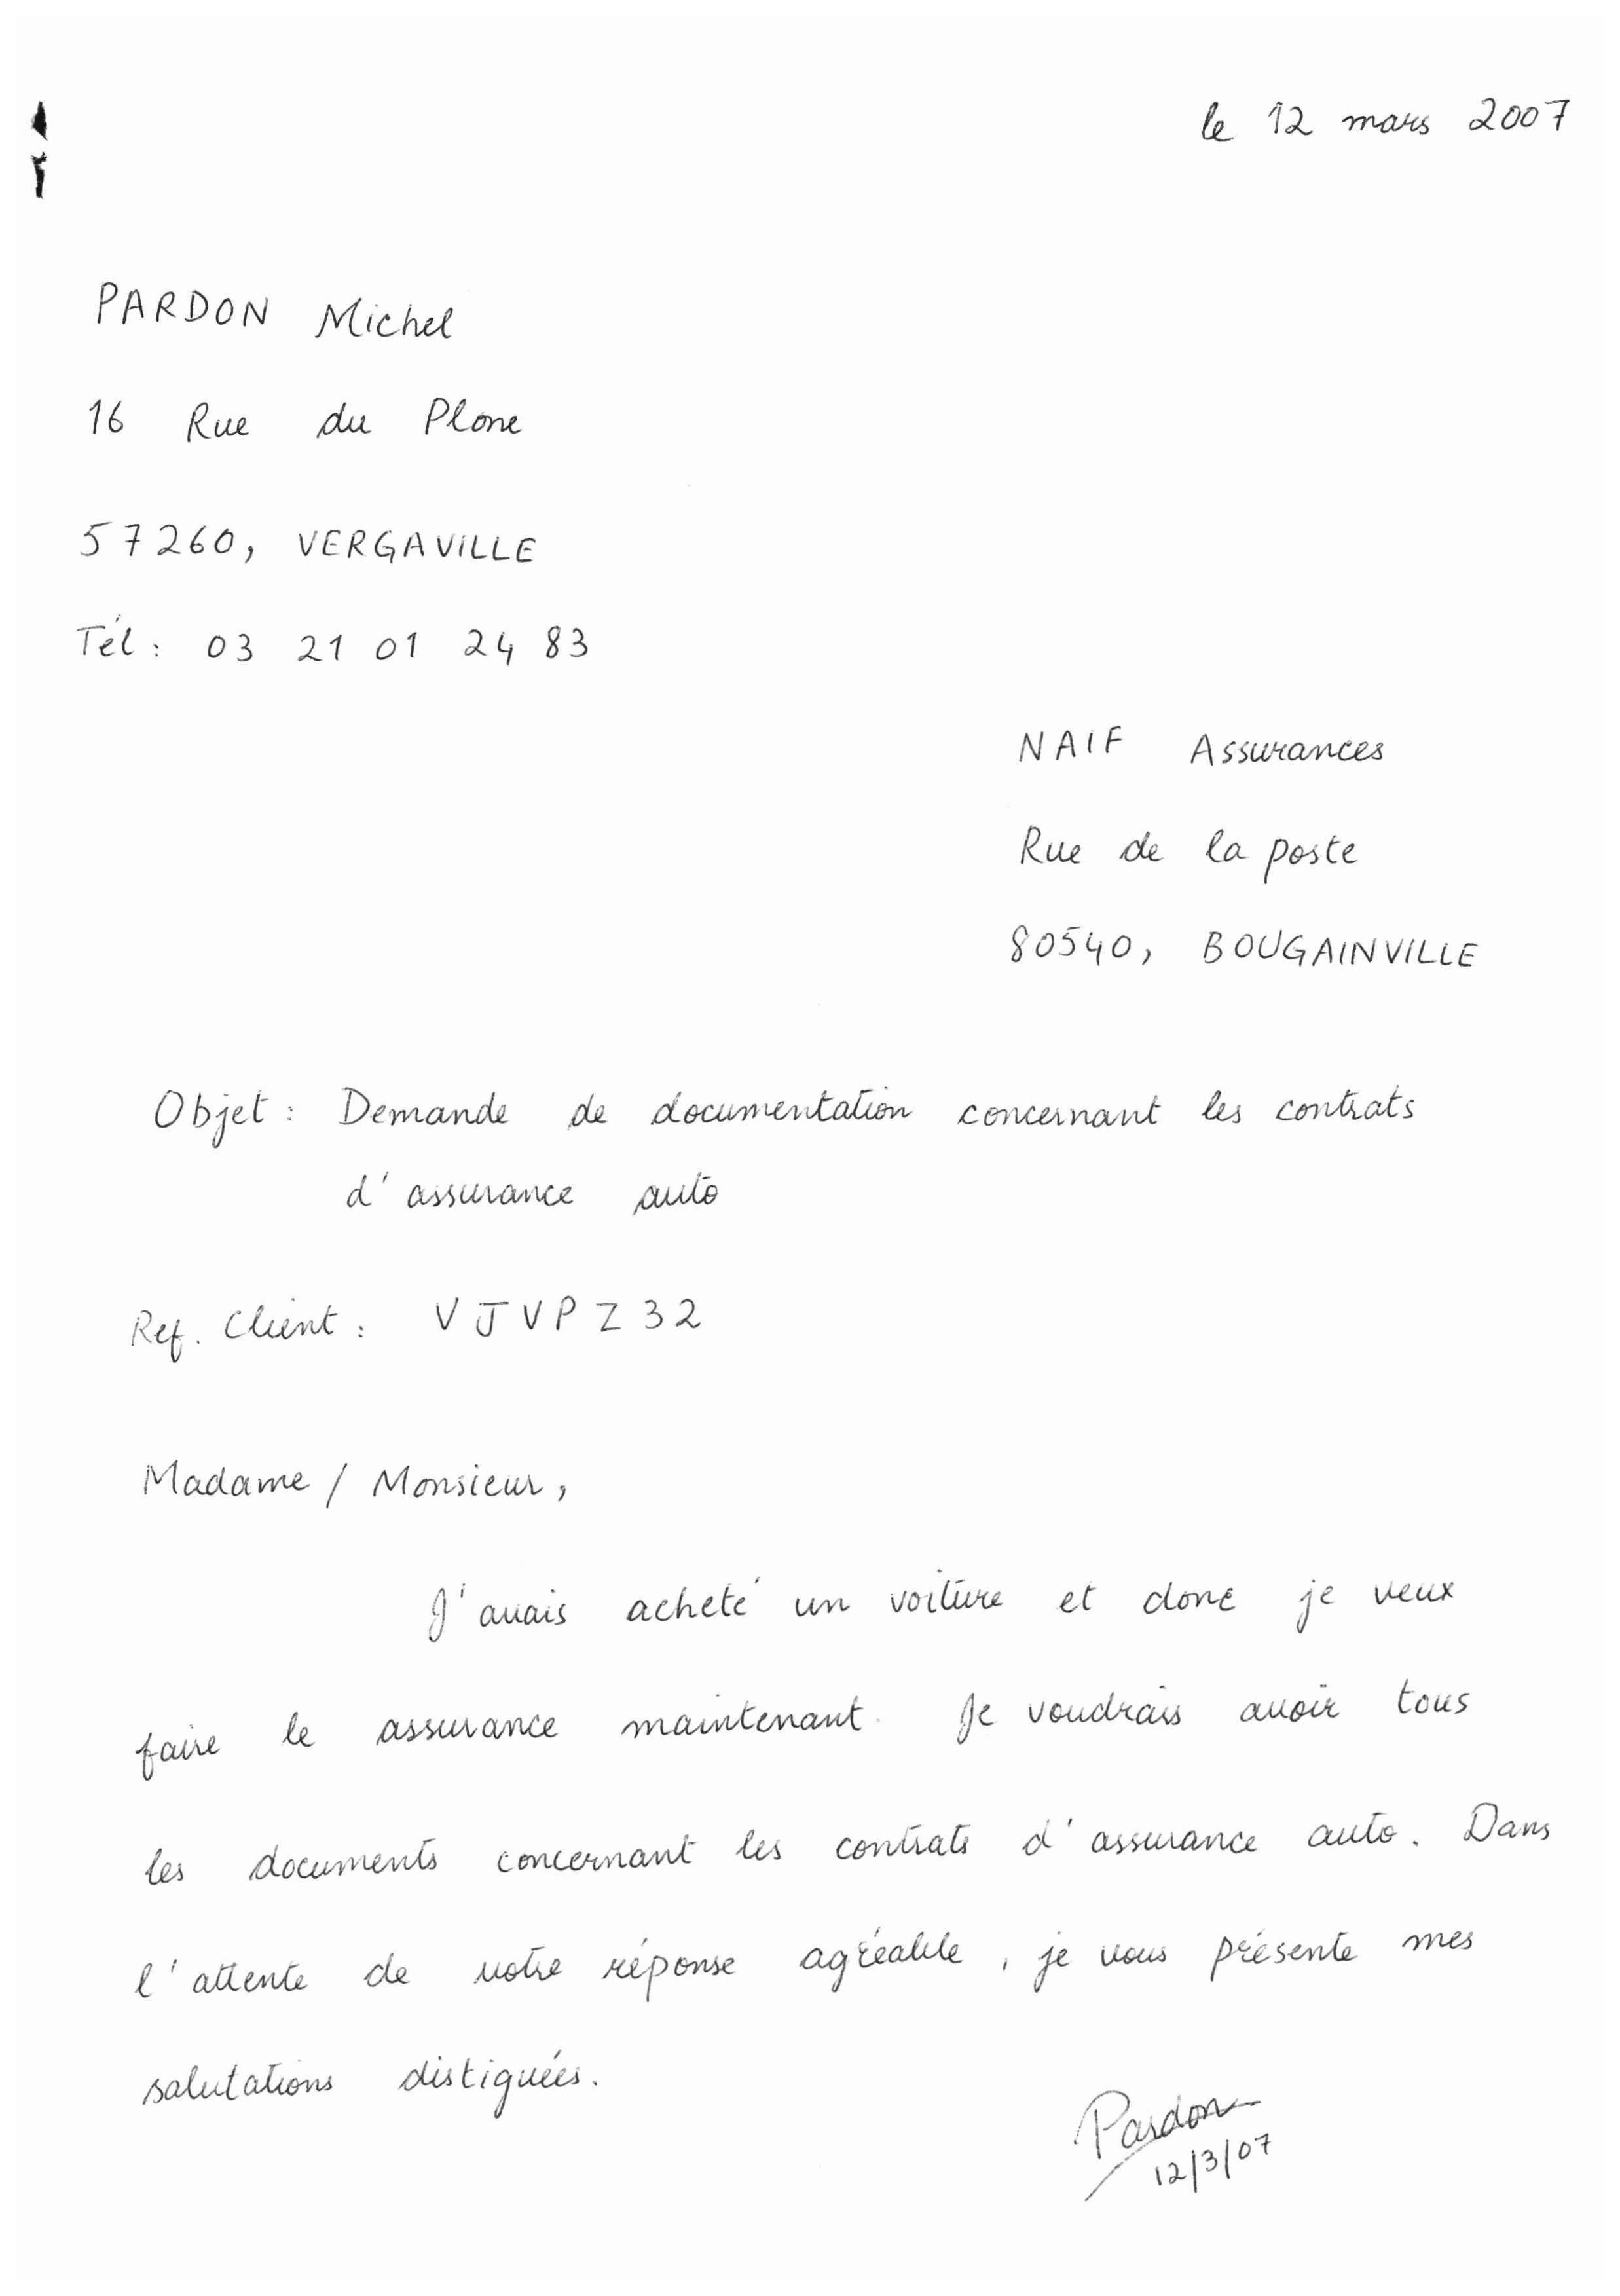 le 12 mars 2007
PARDON Michel
16 Rue du Plone
57260, VERGAVILLE
Tél : 03 21 01 24 83
NAIF Assurances
Rue de la poste
80540, BOUGAINVILLE
Objet : Demande de documentation concernant les contrats
d'assurance auto
Ref. Client : VJVPZ32
Madame / Monsieur,
J'avais acheté un voiture et donc je veux
faire le assurance maintenant. Je voudrais avoir tous
les documents concernant les contrats d'assurance auto. Dans
l'attente de votre réponse agréable, je vous présente mes
salutations distiguées.
Pardon
12/3/07